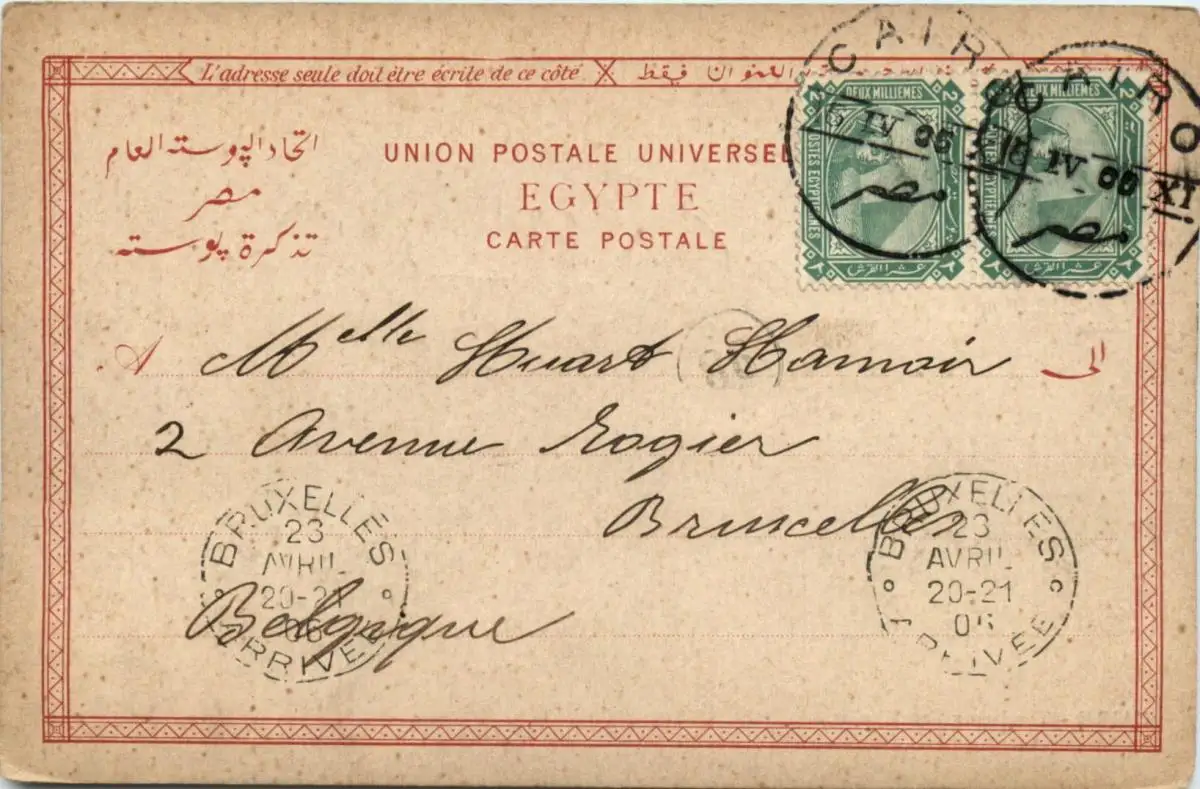 L'adresse seule doit être écrite de ce côté
العنوان فقط
اتحاد البوسته العام
مصر
تذكرة بوسته
UNION POSTALE UNIVERSEL
EGYPTE
CARTE POSTALE
DEUX MILLIEMES
POSTES EGYPTIENNES
عشر القرش
CAIRO
IV 06
مصر
DEUX MILLIEMES
عشر القرش
CAIRO
IV 06 XI
مصر
A Melle Huart Hamoir الى
2 Avenue Rogier
Bruxelles
Belgique
BRUXELLES
23
AVRIL
20-21
06
ARRIVEE
BRUXELLES
23
AVRIL
20-21
06
ARRIVEE